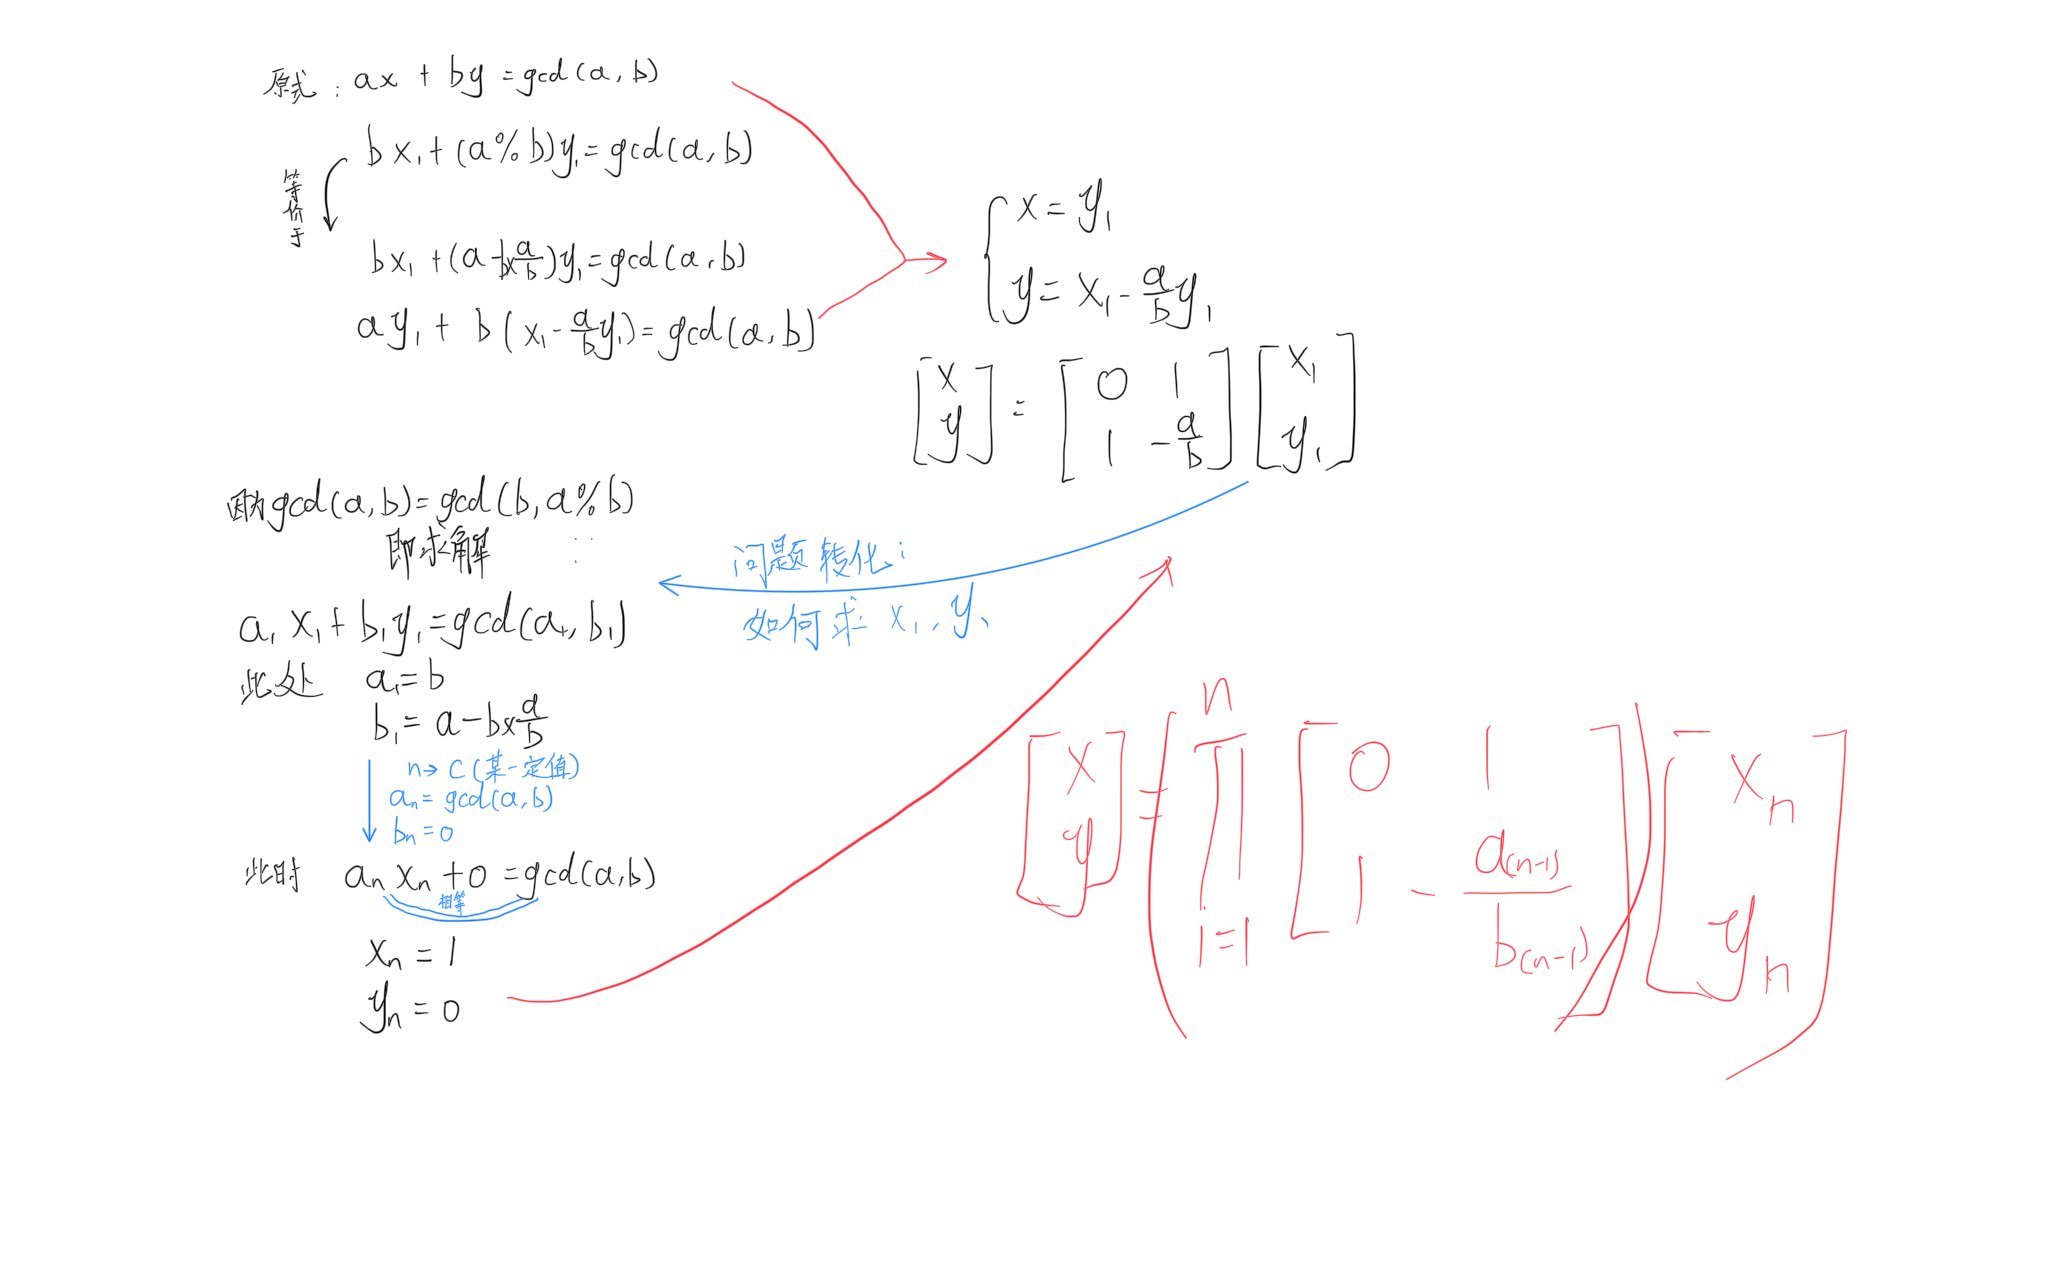 原式：ax + by = gcd(a, b)
bx₁ + (a%b)y₁ = gcd(a, b)
等价于
bx₁ + (a - b×a/b)y₁ = gcd(a, b)
ay₁ + b(x₁ - a/b y₁) = gcd(a, b)
{ x = y₁
y = x₁ - a/b y₁
[x y] = [0 1 1 -a/b] [x₁ y₁]
因为gcd(a, b) = gcd(b, a%b)
即求解
问题转化：
如何求 x₁, y₁
a₁x₁ + b₁y₁ = gcd(a₁, b₁)
此处 a₁ = b
b₁ = a - b×a/b
n → C (某一定值)
aₙ = gcd(a, b)
bₙ = 0
此时 aₙxₙ + 0 = gcd(a, b)
相等
xₙ = 1
yₙ = 0
[x y] = (∏ n i=1 [0 1 1 -a₍ₙ₋₁₎/b₍ₙ₋₁₎]) [xₙ yₙ]